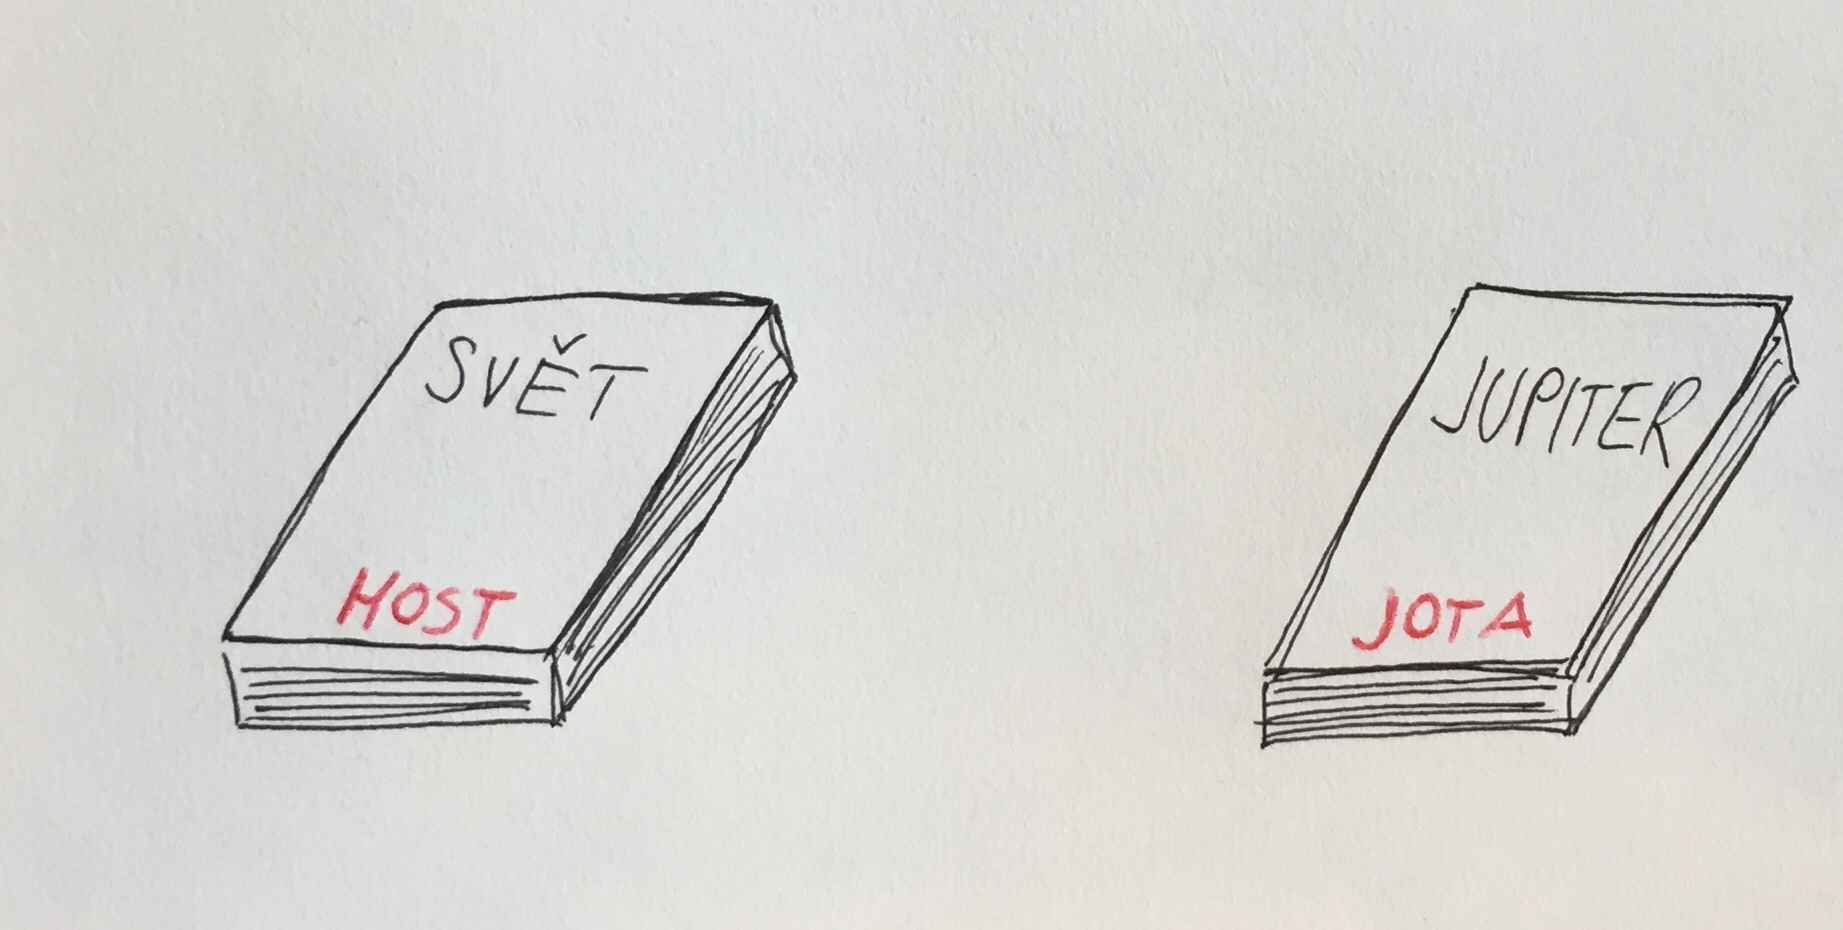 SVĚT
HOST
JUPITER
JOTA